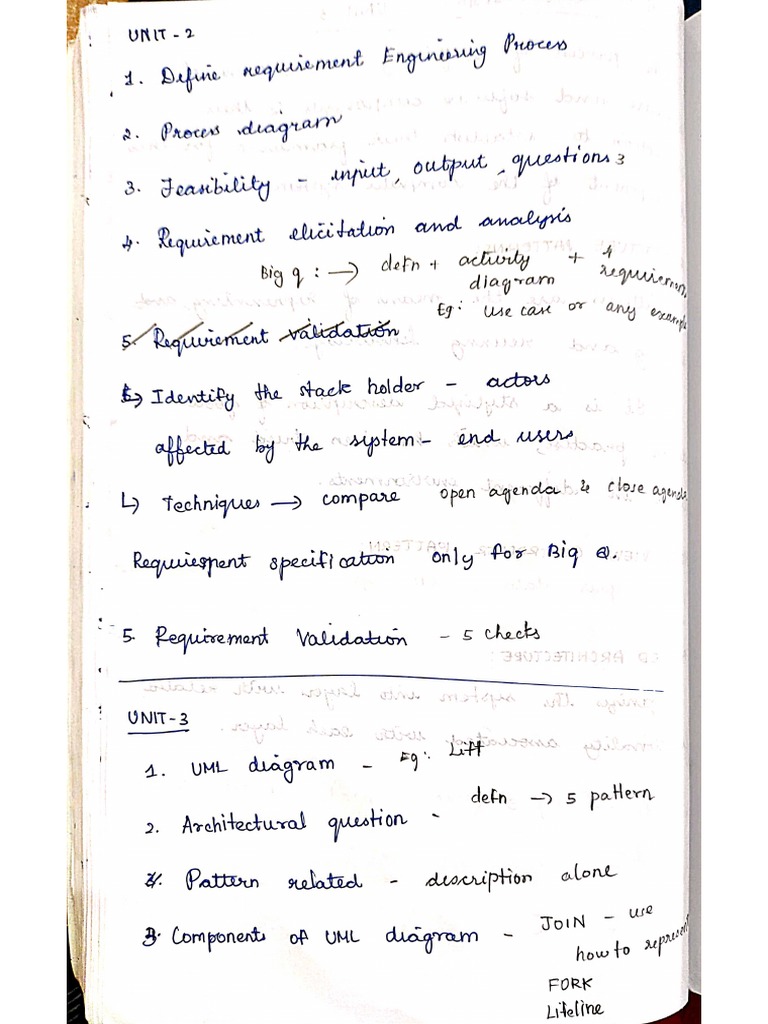 UNIT - 2
1. Define requirement Engineering Process
2. Process diagram
3. Feasibility - input, output, questions 3
4. Requirement elicitation and analysis
Big q : → defn + activity diagram + 4 requirement
Eg: use case or any example
5. Requirement validation
↳ Identify the stack holder - actors
affected by the system - end users
↳ Techniques → compare open agenda & close agenda
Requirement specification only for Big Q.
5. Requirement Validation - 5 checks
UNIT-3
1. UML diagram - Eg: Lift
2. Architectural question - defn → 5 pattern
4. Pattern related - description alone
3. Components of UML diagram - JOIN - use
how to represent
FORK
Lifeline